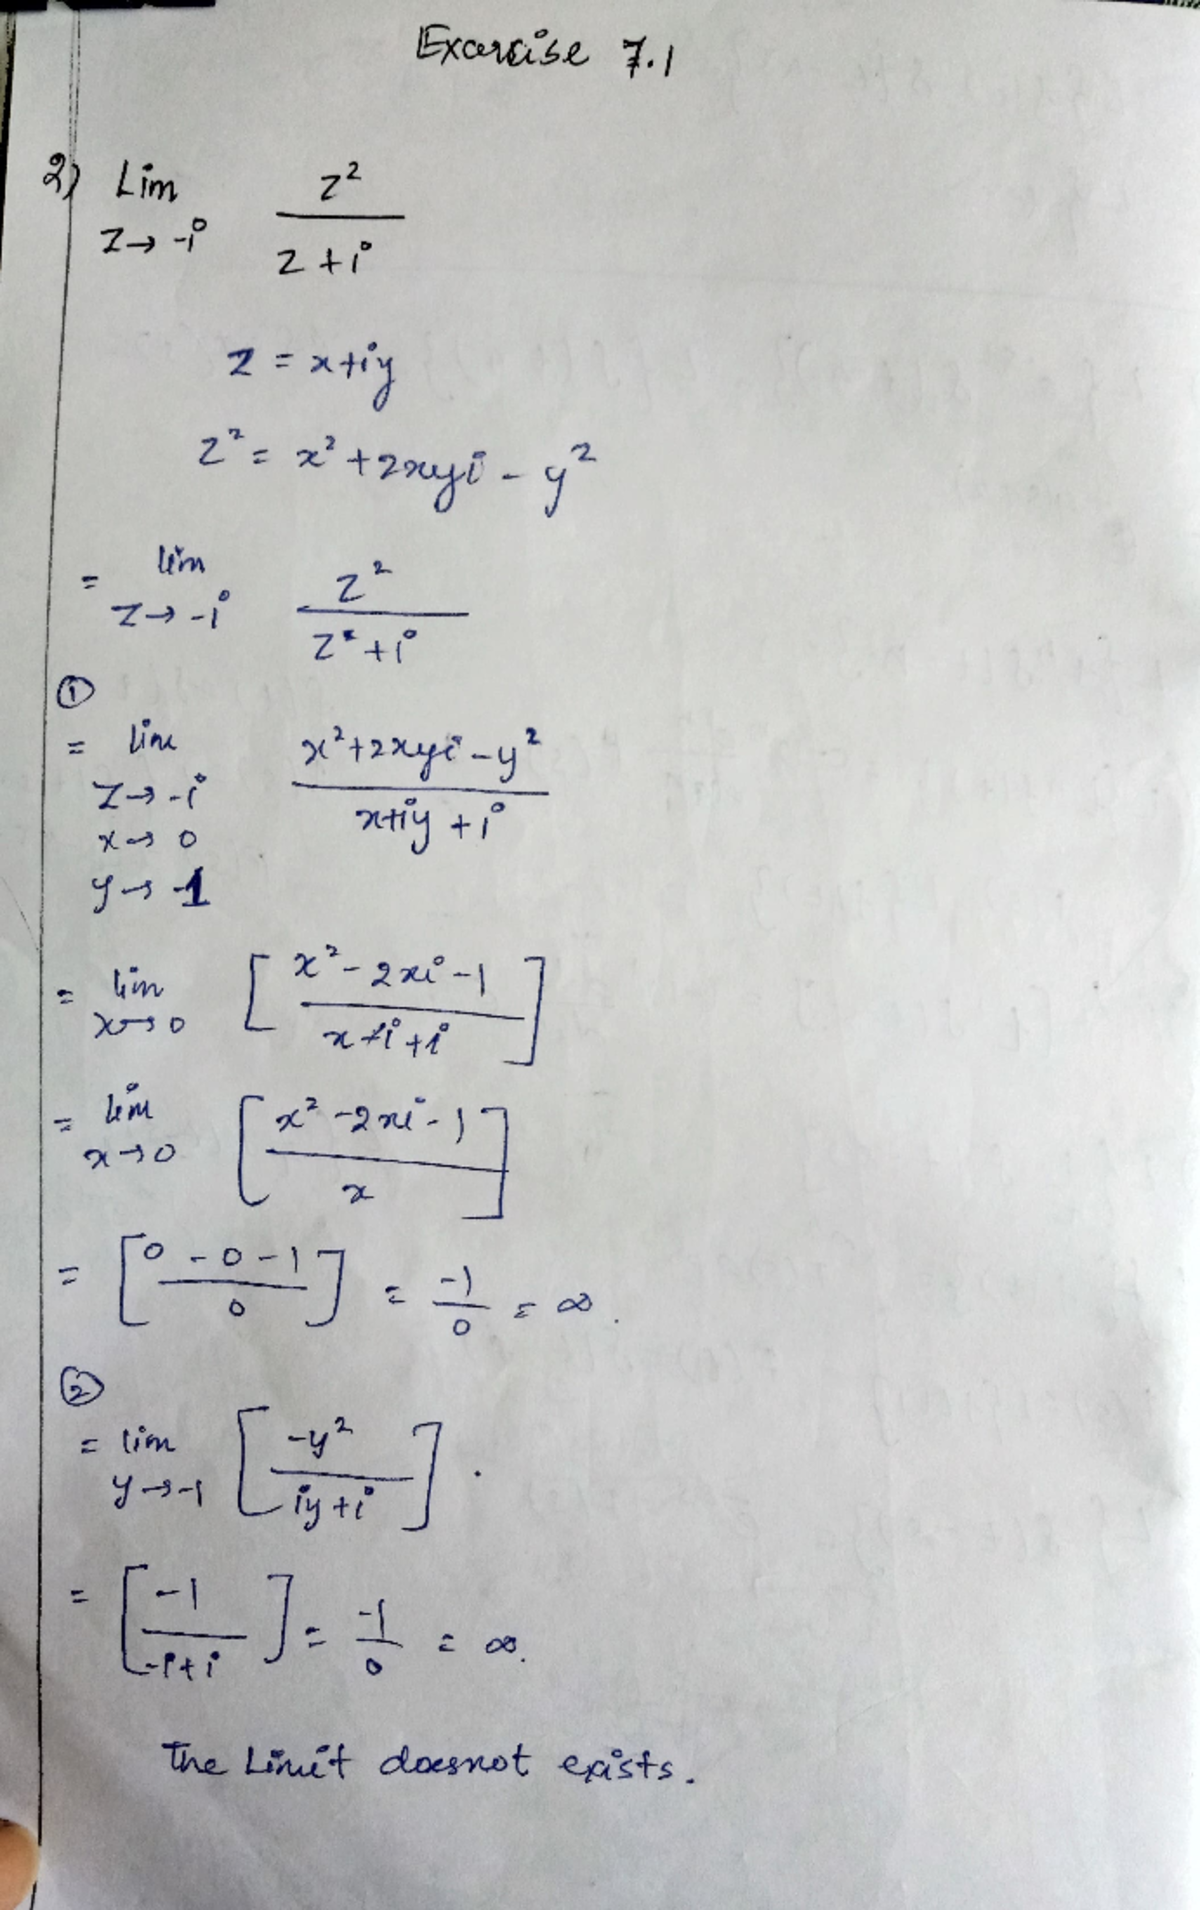 Exercise 7.1
2) Lim z → -i z² / z + i
z = x + iy
z² = x² + 2xyi - y²
= lim z → -i z² / z + i
①
= lim z → -i x → 0 y → -1 x² + 2xyi - y² / x + iy + i
= lim x → 0 [ x² - 2xi - 1 / x - i + i ]
= lim x → 0 [ x² - 2xi - 1 / x ]
= [ 0 - 0 - 1 / 0 ] = -1 / 0 = ∞.
②
= lim y → -1 [ -y² / iy + i ].
= [ -1 / -i + i ] = -1 / 0 = ∞.
The Limit doesnot exists.